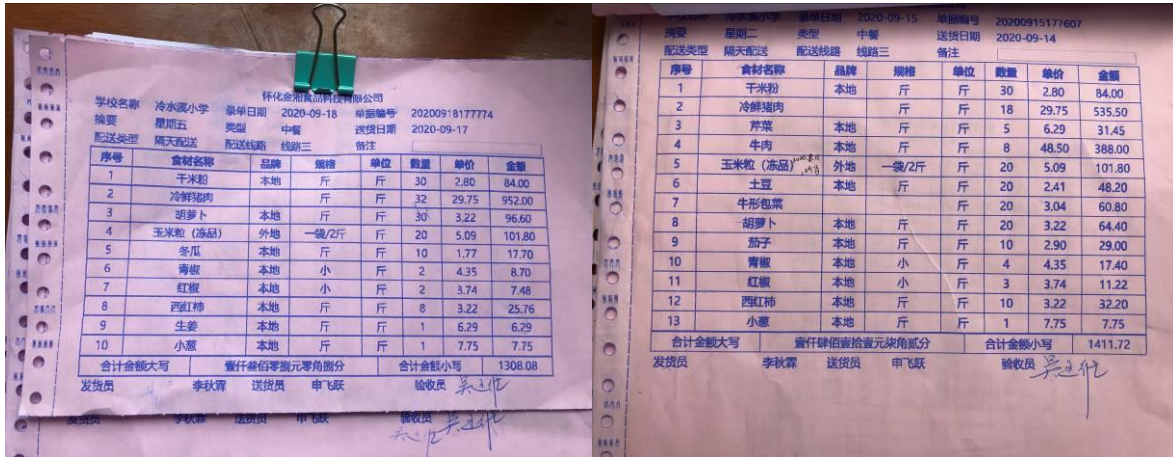 怀化金湘食品科技有限公司
学校名称 冷水溪小学 录单日期 2020-09-18 单据编号 20200918177774
摘要 星期五 类型 中餐 送货日期 2020-09-17
配送类型 隔天配送 配送线路 线路三 备注
序号 食材名称 品牌 规格 单位 数量 单价 金额
1 干米粉 本地 斤 斤 30 2.80 84.00
2 冷鲜猪肉 斤 斤 32 29.75 952.00
3 胡萝卜 本地 斤 斤 30 3.22 96.60
4 玉米粒（冻品） 外地 一袋/2斤 斤 20 5.09 101.80
5 冬瓜 本地 斤 斤 10 1.77 17.70
6 青椒 本地 小 斤 2 4.35 8.70
7 红椒 本地 小 斤 2 3.74 7.48
8 西红柿 本地 斤 斤 8 3.22 25.76
9 生姜 本地 斤 斤 1 6.29 6.29
10 小葱 本地 斤 斤 1 7.75 7.75
合计金额大写 壹仟叁佰零捌元零角捌分 合计金额小写 1308.08
发货员 李秋霖 送货员 申飞跃 验收员
发货员 李秋霖 送货员 申飞跃 验收员
学校名称 冷水溪小学 录单日期 2020-09-15 单据编号 20200915177607
摘要 星期二 类型 中餐 送货日期 2020-09-14
配送类型 隔天配送 配送线路 线路三 备注
序号 食材名称 品牌 规格 单位 数量 单价 金额
1 干米粉 本地 斤 斤 30 2.80 84.00
2 冷鲜猪肉 斤 斤 18 29.75 535.50
3 芹菜 本地 斤 斤 5 6.29 31.45
4 牛肉 本地 斤 斤 8 48.50 388.00
5 玉米粒（冻品） 外地 一袋/2斤 斤 20 5.09 101.80
6 土豆 本地 斤 斤 20 2.41 48.20
7 牛形包菜 斤 20 3.04 60.80
8 胡萝卜 本地 斤 斤 20 3.22 64.40
9 茄子 本地 斤 斤 10 2.90 29.00
10 青椒 本地 小 斤 4 4.35 17.40
11 红椒 本地 小 斤 3 3.74 11.22
12 西红柿 本地 斤 斤 10 3.22 32.20
13 小葱 本地 斤 斤 1 7.75 7.75
合计金额大写 壹仟肆佰壹拾壹元柒角贰分 合计金额小写 1411.72
发货员 李秋霖 送货员 申飞跃 验收员